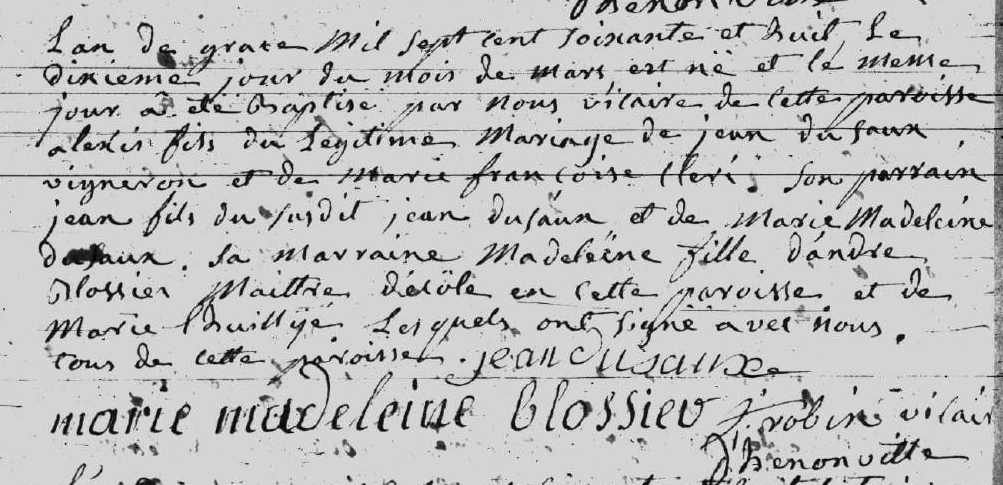 Lan de grace Mil sept cent soixante et huit Le
dixieme jour du mois de mars est nè et le meme
jour a èté Baptisé par nous vicaire de cette paroisse
alexis fils du Legitime Mariage de jean dusaux
vigneron et de Marie francoise Cleri. Son parrain
jean fils du susdit jean dusaux et de Marie Madeleine
dusaux. sa marraine Madeleine fille d'andre
Blossier Maittre décole en cette paroisse et de
Marie Lhuillyé Lesquels ont signè avec nous.
tous de cette paroisse. jean dusaux
marie madeleine blossier J. robin vicair
D'henonville